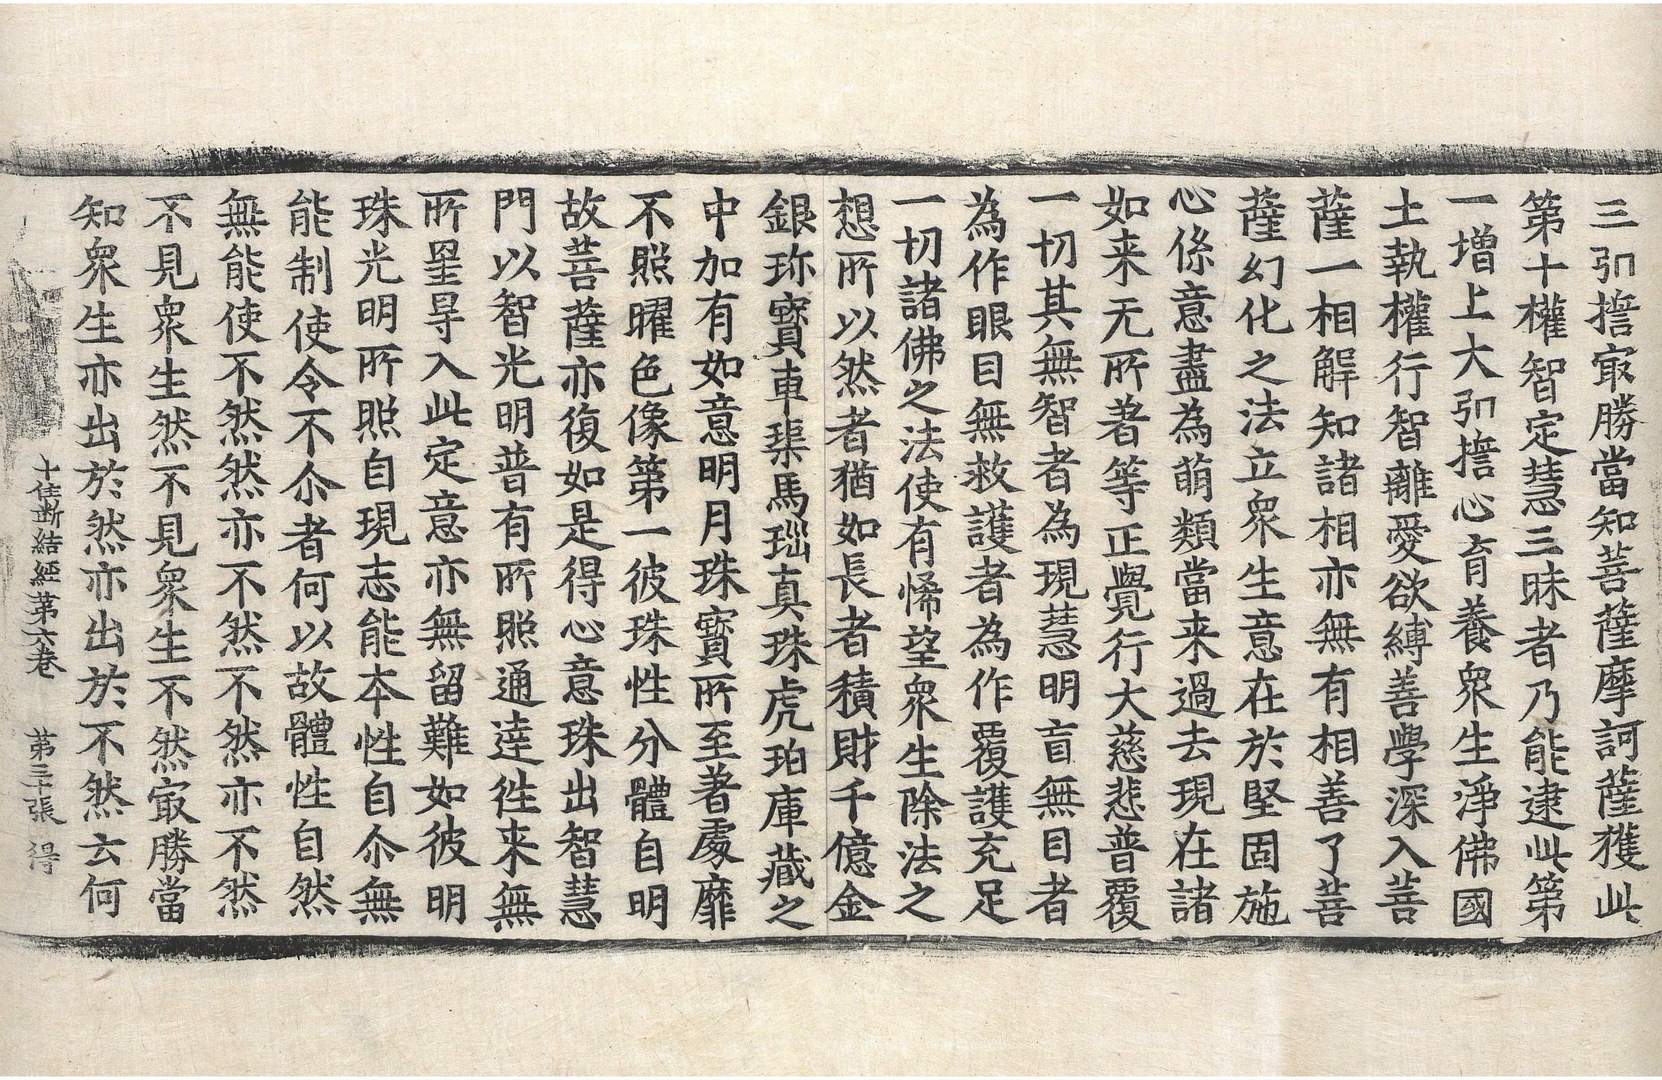 三弘擔㝡勝當知菩薩摩訶薩獲此
第十權智定慧三昧者乃能逮此第
一增上大弘擔心育養衆生淨佛國
土執權行智離愛欲縛善學深入菩
薩一相解知諸相亦無有相善了菩
薩幻化之法立衆生意在於堅固施
心係意盡為萌類當来過去現在諸
如来无所著等正覺行大慈悲普覆
一切其無智者為現慧明盲無目者
為作眼目無救護者為作覆護充足
一切諸佛之法使有悕望衆生除法之
想所以然者猶如長者積財千億金
銀珎寶車𤦲馬瑙真珠虎珀庫藏之
中加有如意明月珠寶所至著處靡
不照曜色像第一彼珠性分體自明
故菩薩亦復如是得心意珠出智慧
門以智光明普有所照通達徃来無
所罣㝵入此定意亦無留難如彼明
珠光明所照自現志能本性自尒無
能制使令不尒者何以故體性自然
無能使不然然亦不然不然亦不然
不見衆生然不見衆生不然㝡勝當
知衆生亦出於然亦出於不然云何
十住断結經第六卷 第三十張 得